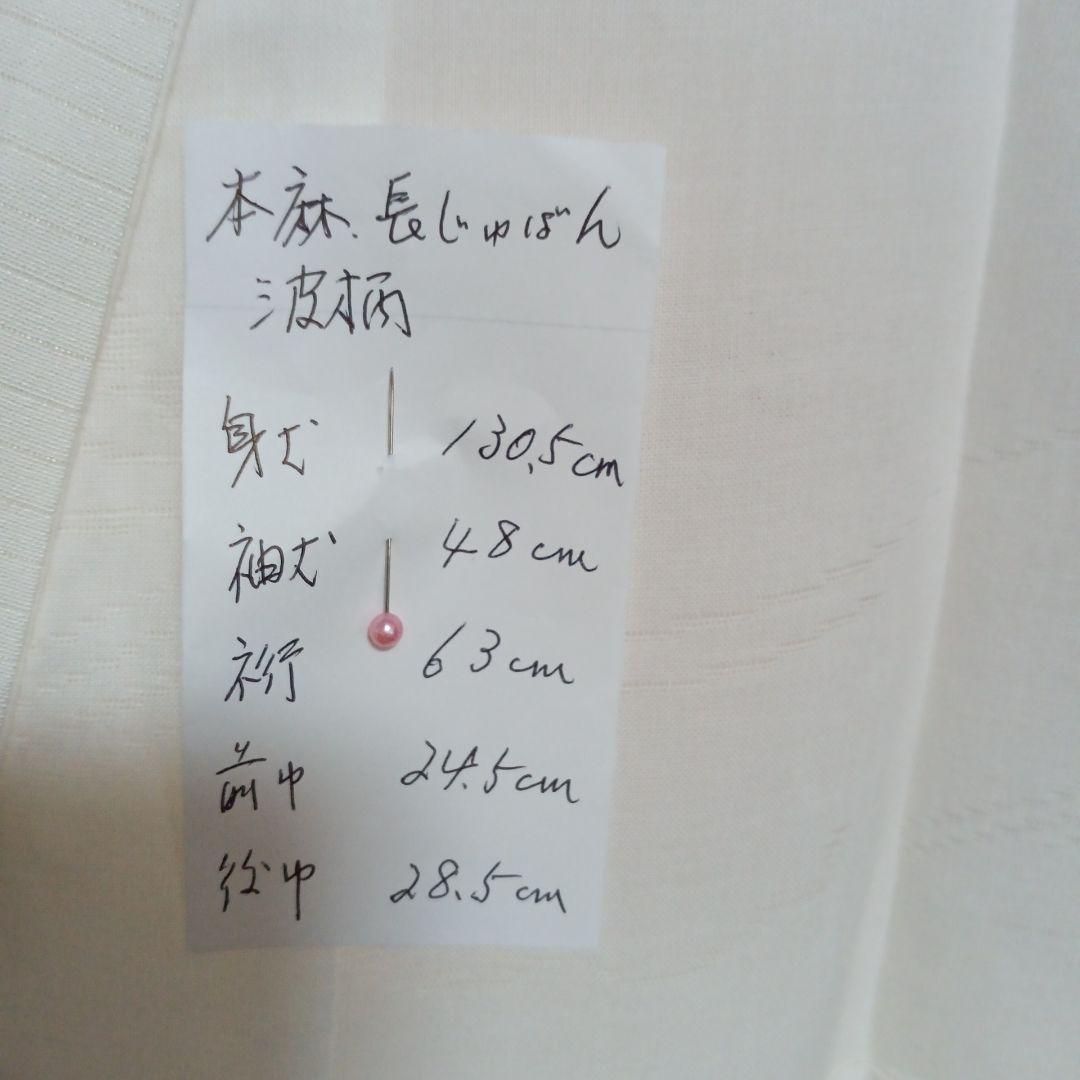 本麻.長じゅばん
波柄
身丈 130.5cm
袖丈 48cm
裄 63cm
前巾 24.5cm
後巾 28.5cm